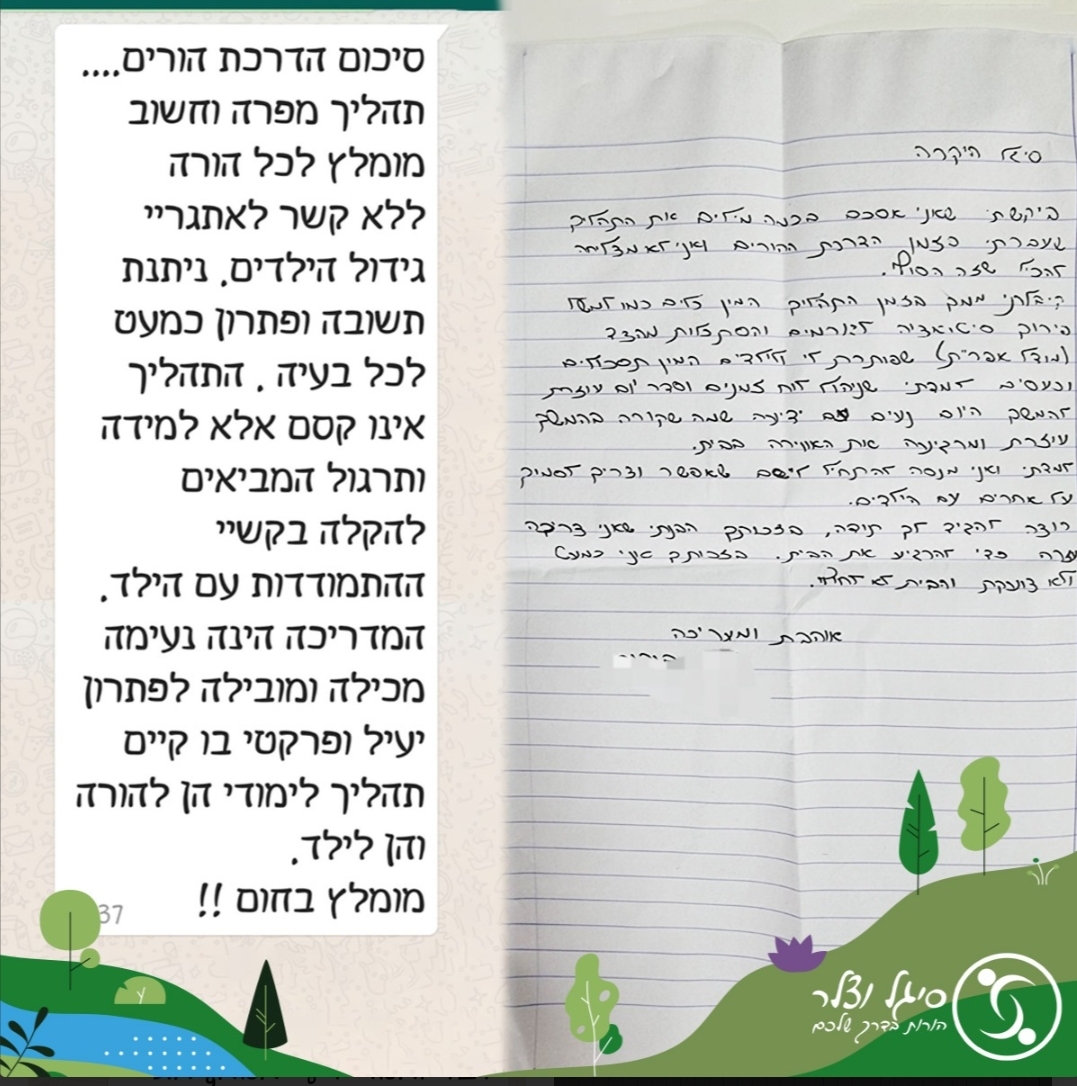 סיכום הדרכת הורים....
תהליך מפרה וחשוב
מומלץ לכל הורה
ללא קשר לאתגריי
גידול הילדים. ניתנת
תשובה ופתרון כמעט
לכל בעיה . התהליך
אינו קסם אלא למידה
ותרגול המביאים
להקלה בקשיי
ההתמודדות עם הילד.
המדריכה הינה נעימה
מכילה ומובילה לפתרון
יעיל ופרקטי בו קיים
תהליך לימודי הן להורה
והן לילד.
מומלץ בחום !!
37
סיגל היקרה
ביקשת שאני אסכם בכמה מילים את התהליך
שעברתי בזמן הדרכת ההורים ואני לא מצליחה
להכיל שזה הסוף.
קיבלתי ממך בזמן התהליך המון כלים כמו למשל
פירוק סיטואציה לגורמים והסתכלות מהצד
(מודל אפר"ת) שפותרת לי ולילדים המון תסכולים
וכעסים למדתי שניהול לוח זמנים וסדר יום עוזרת
להמשך היום נעים עם ידיעה שמה שקורה בהמשך
עוזרת ומרגיעה את האווירה בבית.
למדתי ואני מנסה להתחיל ליישם שאפשר וצריך לסמוך
על אחרים עם הילדים.
רוצה להגיד לך תודה, בזכותך הבנתי שאני צריכה
עזרה כדי להרגיע את הבית. בזכותך אני כמעט
ולא צועקת והבית לא לחוץ.
אוהבת ומעריכה
סיגל וצלר
הורות בדרך שלכם